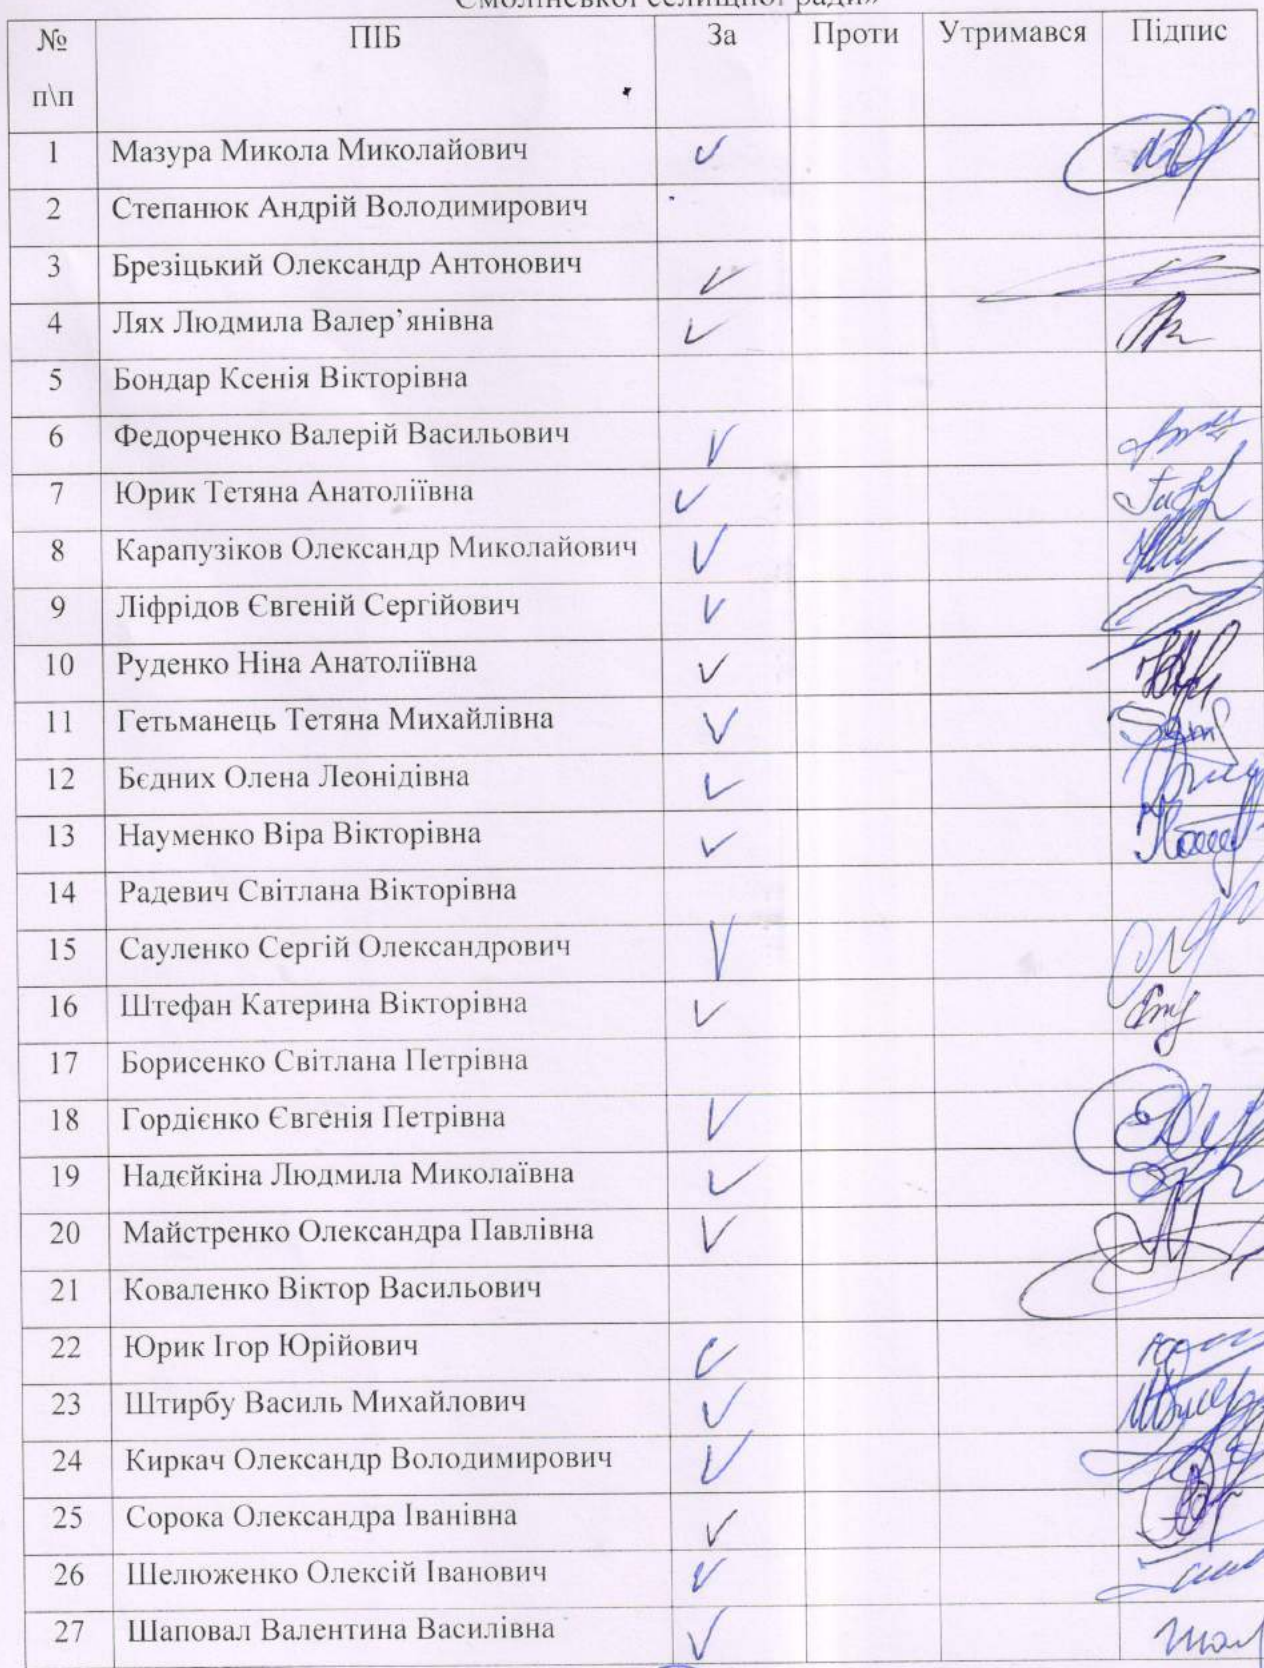 Смолінської селищної ради»
№ п\п ПІБ За Проти Утримався Підпис
1 Мазура Микола Миколайович ✓
2 Степанюк Андрій Володимирович
3 Брезіцький Олександр Антонович ✓
4 Лях Людмила Валер’янівна ✓
5 Бондар Ксенія Вікторівна
6 Федорченко Валерій Васильович ✓
7 Юрик Тетяна Анатоліївна ✓
8 Карапузіков Олександр Миколайович ✓
9 Ліфрідов Євгеній Сергійович ✓
10 Руденко Ніна Анатоліївна ✓
11 Гетьманець Тетяна Михайлівна ✓
12 Бєдних Олена Леонідівна ✓
13 Науменко Віра Вікторівна ✓
14 Радевич Світлана Вікторівна
15 Сауленко Сергій Олександрович ✓
16 Штефан Катерина Вікторівна ✓
17 Борисенко Світлана Петрівна
18 Гордієнко Євгенія Петрівна ✓
19 Надєйкіна Людмила Миколаївна ✓
20 Майстренко Олександра Павлівна ✓
21 Коваленко Віктор Васильович
22 Юрик Ігор Юрійович ✓
23 Штирбу Василь Михайлович ✓
24 Киркач Олександр Володимирович ✓
25 Сорока Олександра Іванівна ✓
26 Шелюженко Олексій Іванович ✓
27 Шаповал Валентина Василівна ✓